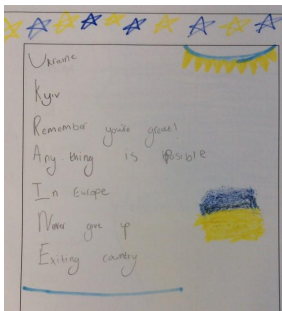 Ukraine
Kyiv
Remember you're great!
Any thing is posible
In Europe
Never give up
Exiting country